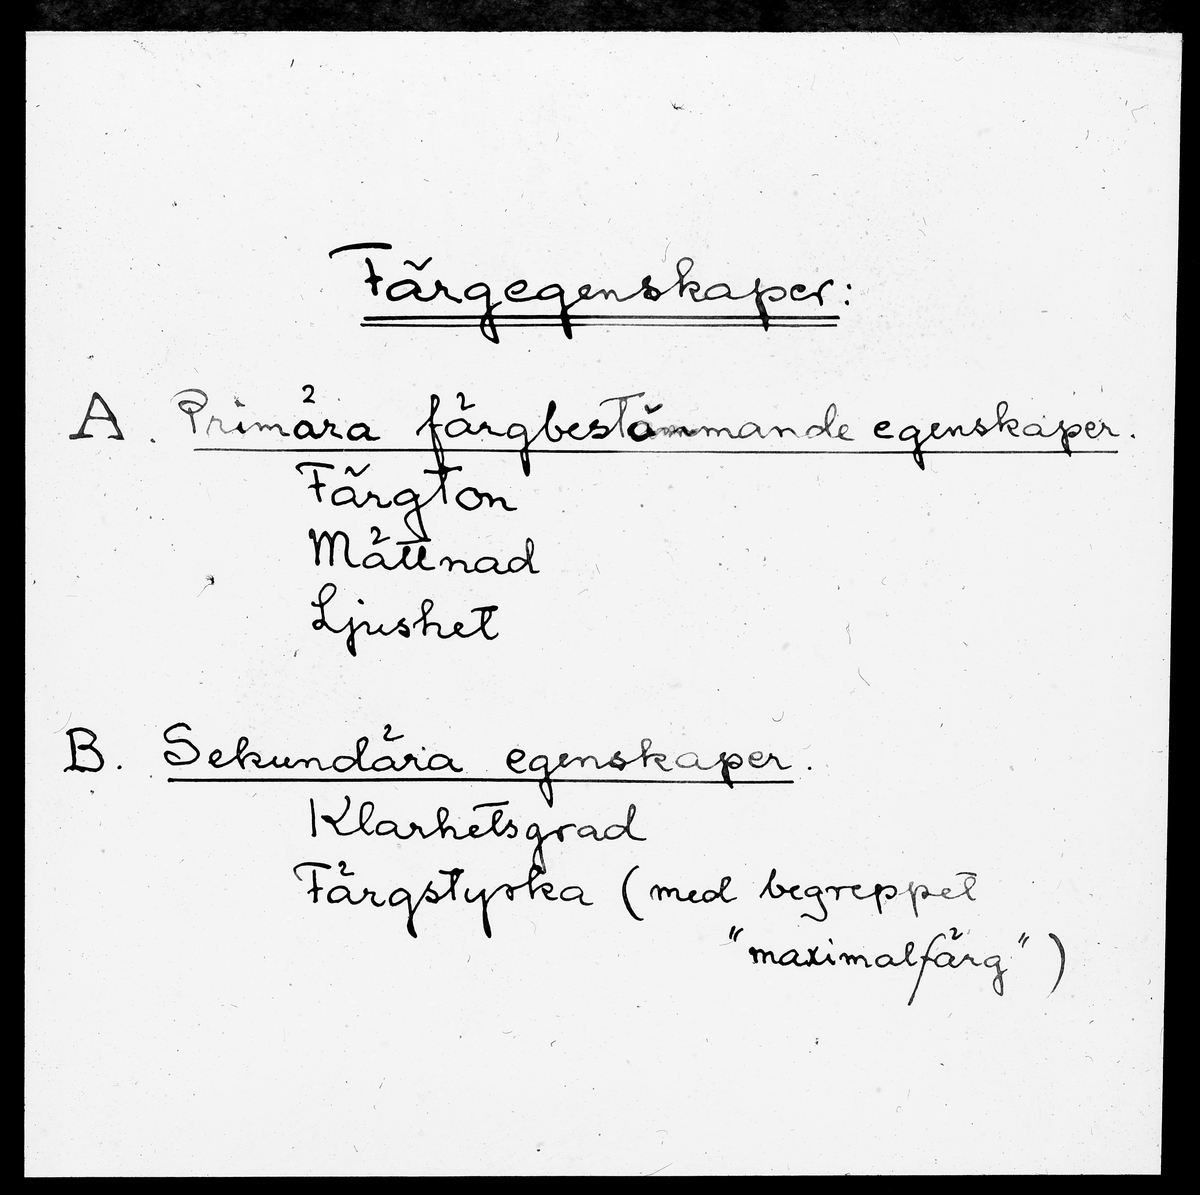 Färgegenskaper:
A. Primära färgbestämmande egenskaper.
Färgton
Mättnad
Ljushet
B. Sekundära egenskaper.
Klarhetsgrad
Färgstyrka (med begreppet
"maximalfärg")